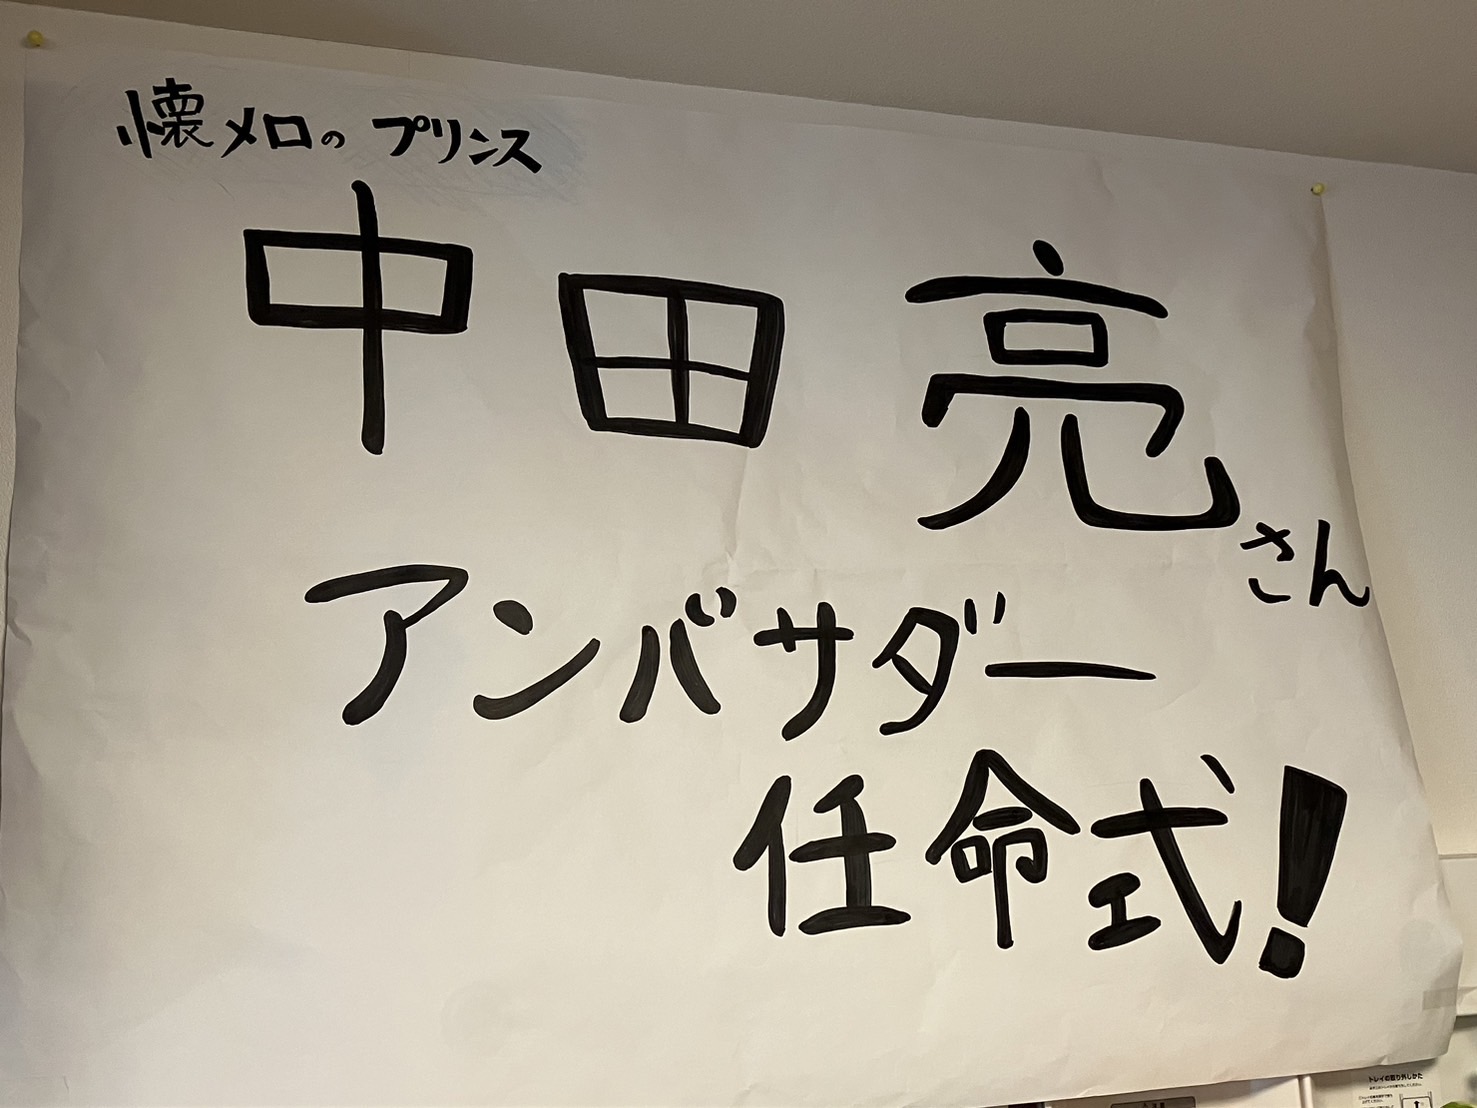 懐メロのプリンス
中田亮さん
アンバサダー
任命式!
トレイの取り外しかた